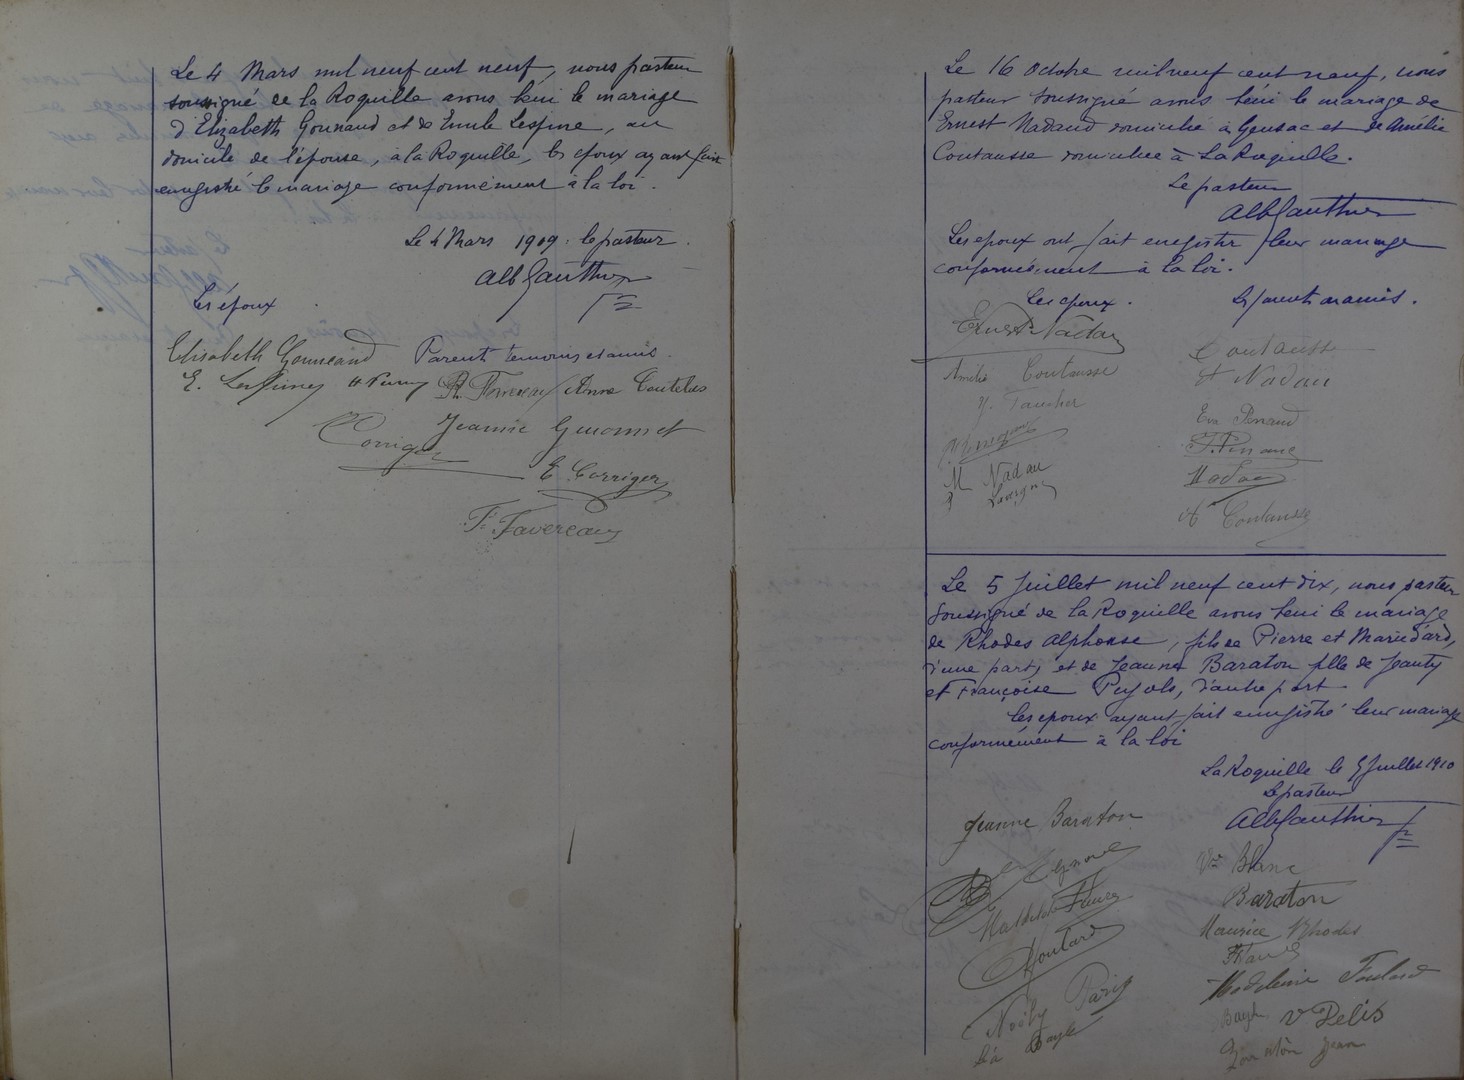 Le 4 Mars mil neuf cent neuf, nous pasteur
soussigné de la Roquille avons béni le mariage
d'Elizabeth Gonnaud et de Emile Lespine, au
domicile de l'épouse, à la Roquille, les époux ayant fait
enregistré le mariage conformément à la loi.
Le 4 Mars 1909. le pasteur.
Alb Gauthier
Les époux
Elisabeth Gonneaud Parents temoins et amis.
E. Favereau Anna
Jeanne Guionnet
Corriger
E. Corriger
F. Favereau
Le 16 Octobre mil neuf cent neuf, nous
pasteur soussigné avons béni le mariage de
Ernest Nadaud domicilié à Gensac et de Amélie
Coutausse domiciliée à La Roquille.
Le pasteur
Alb Gauthier
Les époux ont fait enregistrer leur mariage
conformément à la loi.
Les époux. Les parents et amis.
Ernest Nadau
Amélie Coutausse
Nadau
M Nadau
Coutausse
Le 5 Juillet mil neuf cent dix, nous pasteur
soussigné de la Roquille avons béni le mariage
de Rhodes Alphonse, fils de Pierre et Marie d'ard,
d'une part, et de Jeanne Baraton fille de Jeanty
et Françoise Pujols, d'autre part
les époux ayant fait enregistré leur mariage
conformément à la loi
La Roquille le 5 Juillet 1910
Le pasteur
Alb Gauthier
Jeanne Baraton
Mathilde
Moutard
Noëly Paris
Léa Bayle
Vve Blanc
Baraton
Maurice Rhodes
Madeleine
Bayle V Pelis
Jean